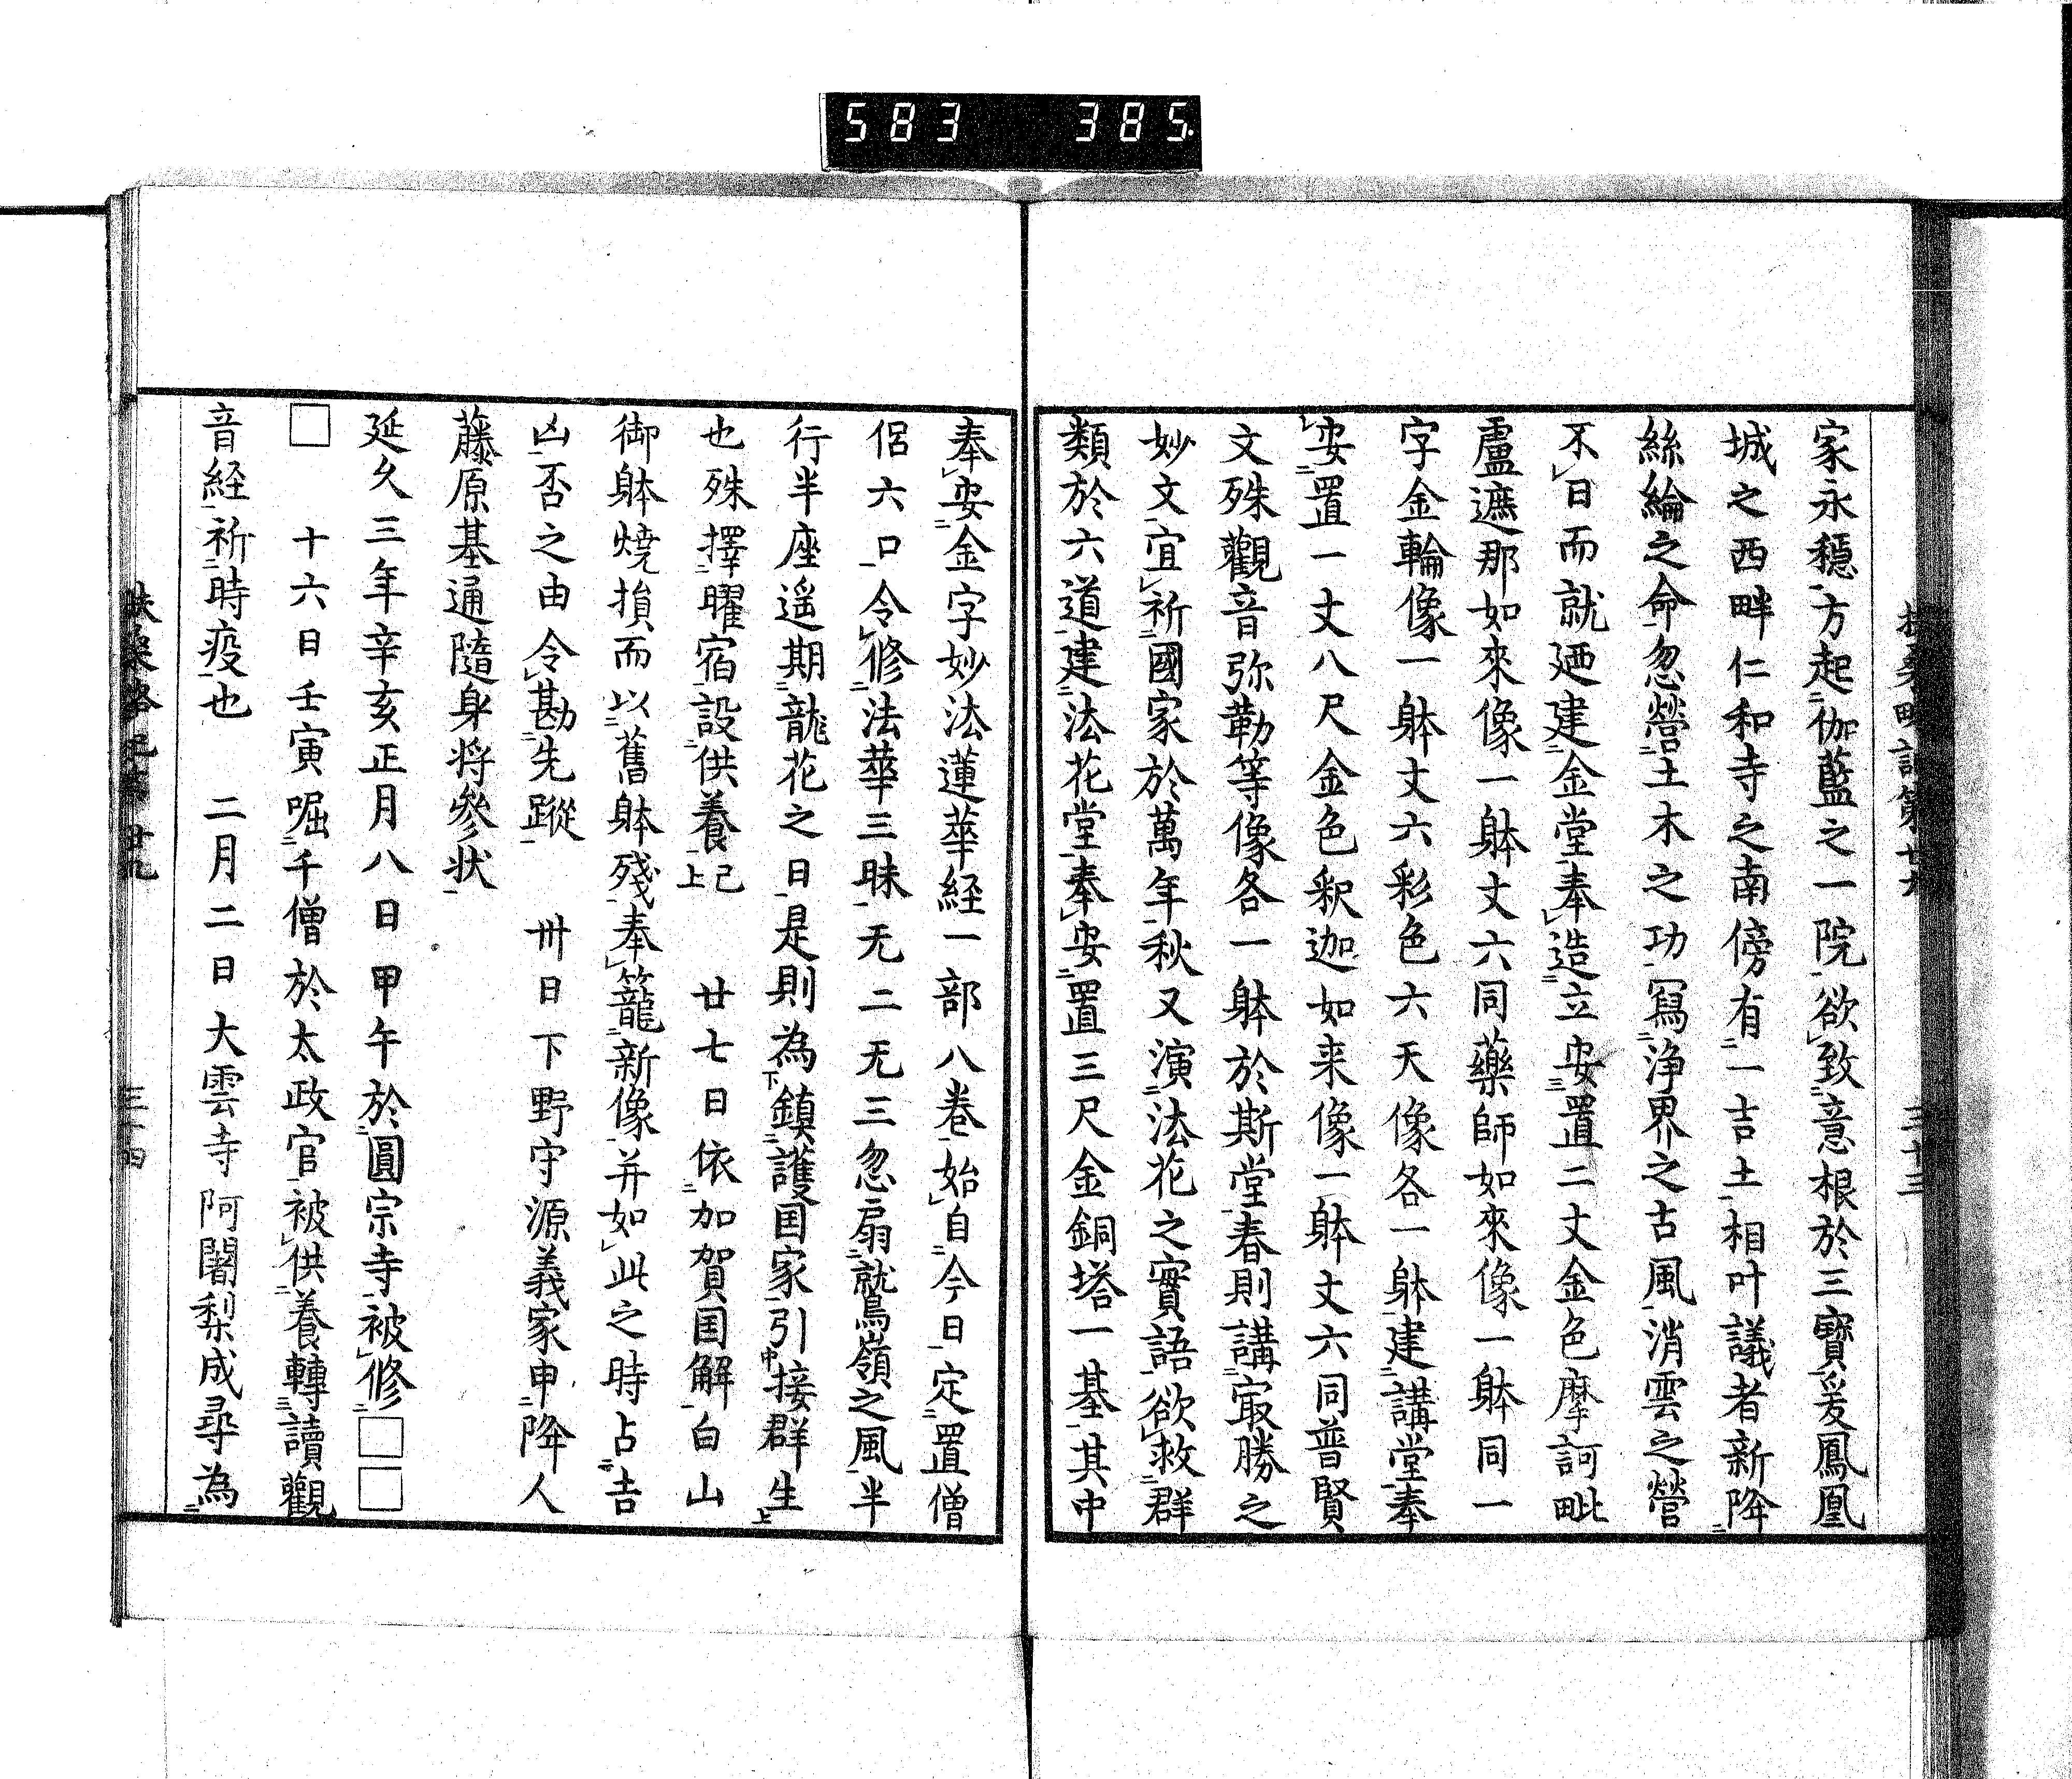 583 385.
扶桑略記第廿九 三十三
家永穩方起伽藍之一院欲致意根於三寳爰鳳凰
城之西畔仁和寺之南傍有一吉土相叶議者新降
絲綸之命忽營土木之功寫浄界之古風消雲之營
不日而就廼建金堂奉造立安置二丈金色摩訶毗
盧遮那如來像一躰丈六同藥師如來像一躰同一
字金輪像一躰丈六彩色六天像各一躰建講堂奉
安置一丈八尺金色釈迦如来像一躰丈六同普賢
文殊觀音弥勒等像各一躰於斯堂春則講㝡勝之
妙文宜祈國家於萬年秋又演法花之實語欲救群
類於六道建法花堂奉安置三尺金銅塔一基其中
奉安金字妙法蓮華経一部八巻始自今日定置僧
侶六口令修法華三昧无二无三忽扇鷲嶺之風半
行半座遥期龍花之日是則為下鎮護国家引中接群生上
也殊擇曜宿設供養已上 廿七日依加賀国解白山
御躰燒損而以舊躰殘奉籠新像并如此之時占吉
凶否之由令勘先蹤 卅日下野守源義家申降人
藤原基通隨身将參状
延久三年辛亥正月八日甲午於圓宗寺被修□□
□ 十六日壬寅啒千僧於太政官被供養轉讀觀
音経祈時疫也 二月二日大雲寺阿闍梨成尋為
扶桑略記第廿九 三十四